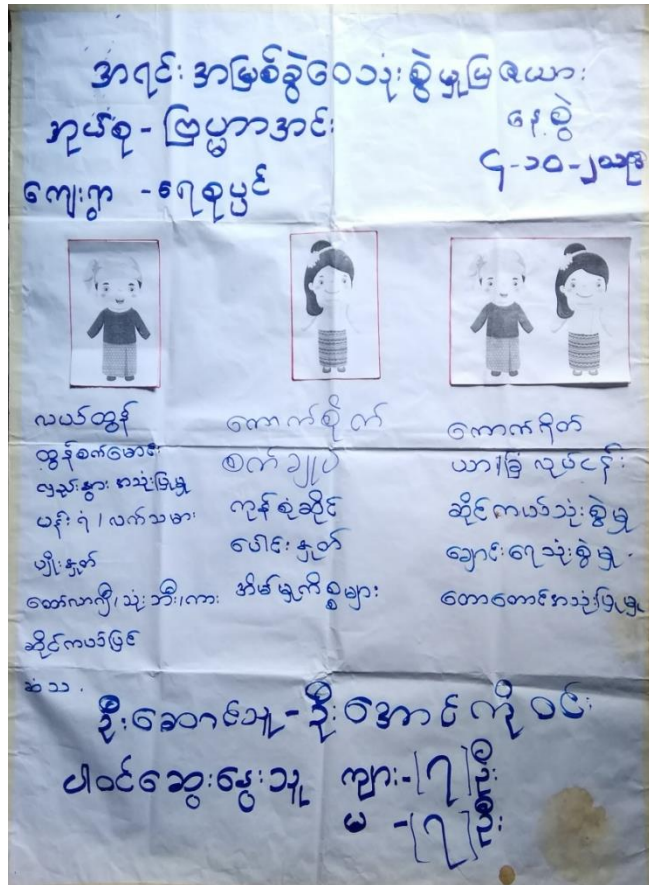 အရင်းအမြစ်ခွဲဝေသုံးစွဲမှုပြဇယား
အုပ်စု - ဗြဟ္မာအင်း
နေ့စွဲ
ကျေးရွာ - ရေစုပွင်
၄-၁၀-၂၀၁၉
လယ်ထွန်
ထွန်စက်မောင်း
လှည်းနွား အသုံးပြုမှု
ပန်းရံ/လက်သမား
ပျိုးနှုတ်
ထော်လာဂျီ/သုံးဘီး/ကား
ဆိုင်ကယ်ပြင်
ဆံသ
ကောက်စိုက်
စက်ချုပ်
ကုန်စုံဆိုင်
ပေါင်းနှုတ်
အိမ်မှုကိစ္စများ
ကောက်ရိတ်
ယာ/ခြံ လုပ်ငန်း
ဆိုင်ကယ်သုံးစွဲမှု
ချောင်းရေသုံးစွဲမှု
တောတောင်အသုံးပြုမှု
ဦးဆောင်သူ - ဦးအောင်ကိုဝင်း
ပါဝင်ဆွေးနွေးသူ ကျား - (၇)ဦး
မ - (၇)ဦး